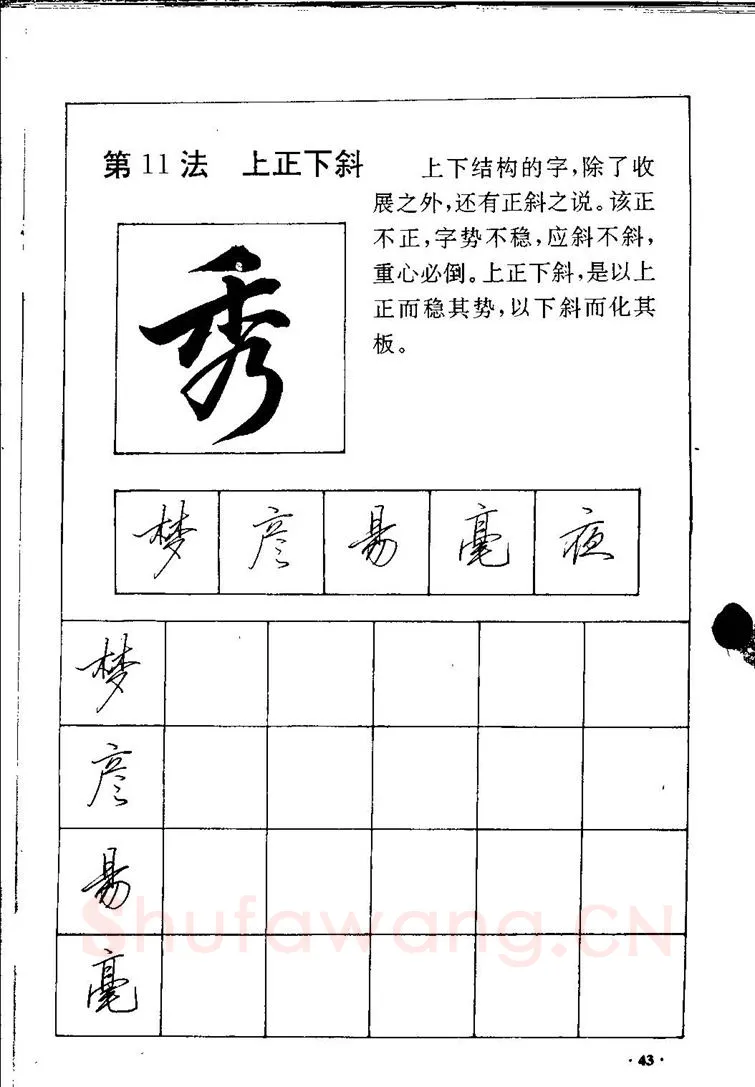 第11法 上正下斜
上下结构的字,除了收
展之外,还有正斜之说。该正
不正,字势不稳,应斜不斜,
重心必倒。上正下斜,是以上
正而稳其势,以下斜而化其
板。
秀
梦 彦 易 毫 夜
梦
彦
易
毫
Shufawang.CN
·43·